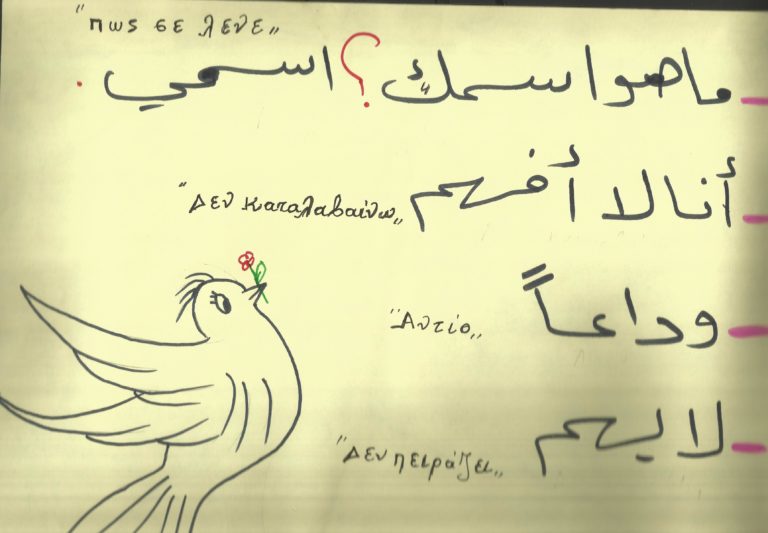 "πως σε λενε"
ما هو اسمكِ؟ اسمي .
أنا لا أفهم "Δεν καταλαβαίνω"
وداعاً "Αντίο"
لا يهم "Δεν πειράζει"